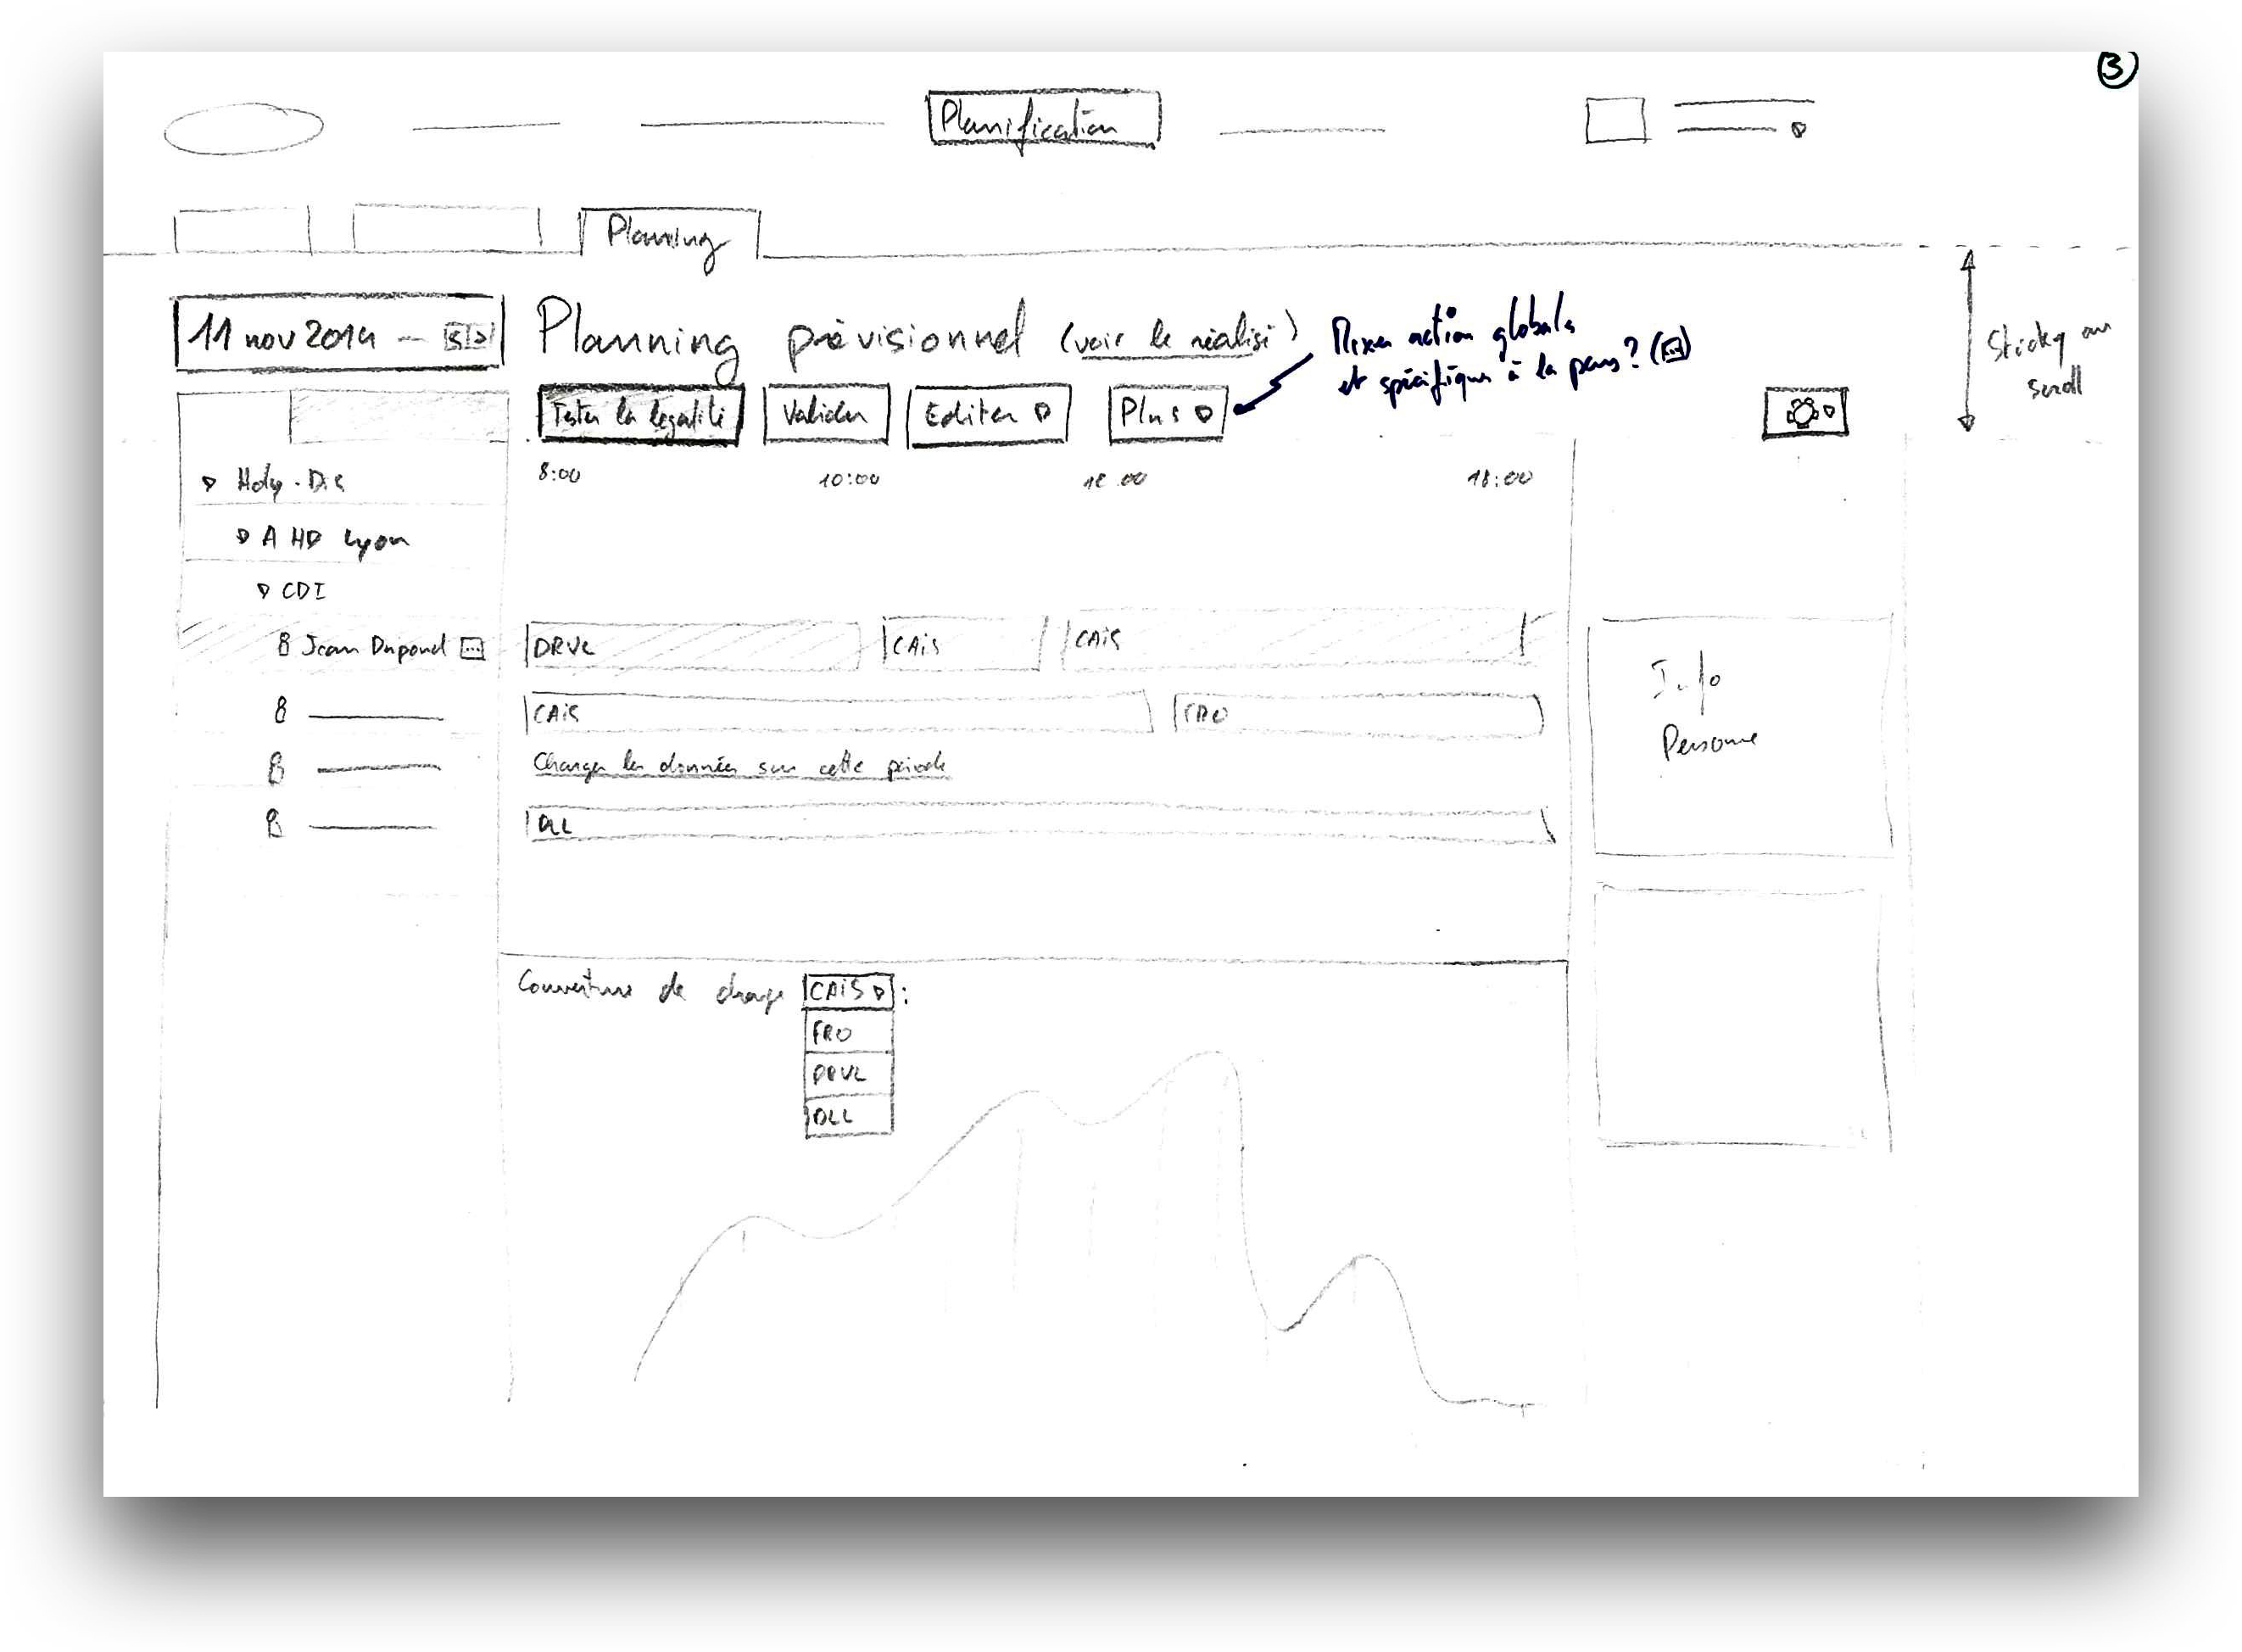 3
Planification
Planning
11 nov 2014
Planning prévisionnel (voir le réalisé)
Mixer action globale
et spécifique à la pers? (...)
Sticky au
scroll
Tester la légalité
Valider
Editer
Plus
8:00 10:00 18:00
Holy-Dis
A HD Lyon
CDI
Jean Dupond ...
DRVL
CAiS
CAiS
CAiS
FRO
Charger les données sur cette période
DLL
Info
Personne
Couverture de charge CAiS :
FRO
DRVL
DLL